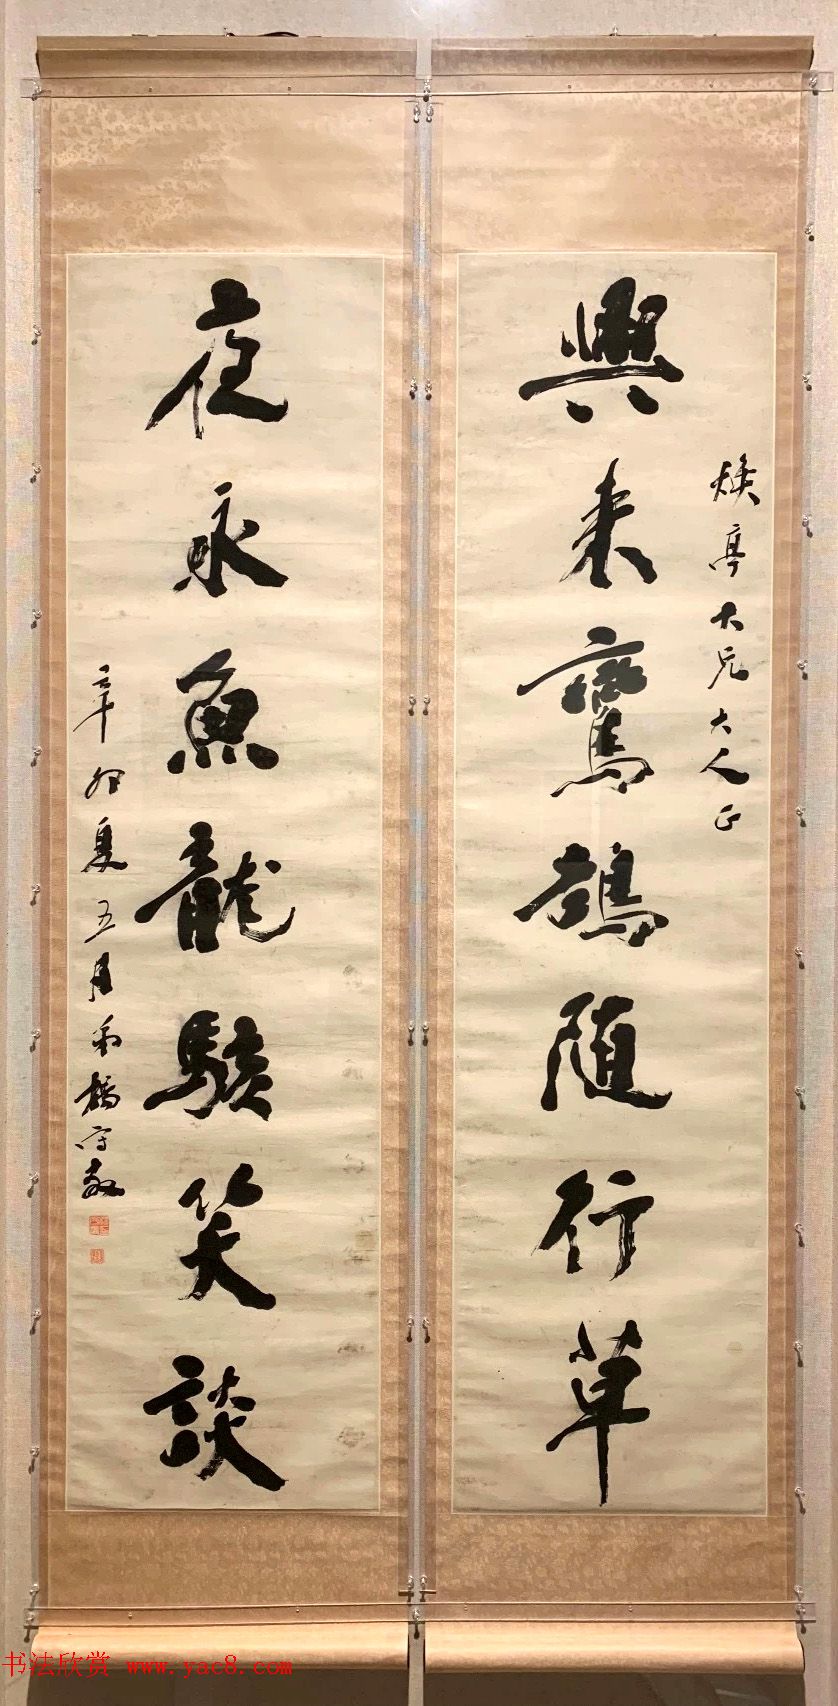 煥亭大兄大人正
興來鸞鵠随行草
夜永魚龍駭笑談
辛卯夏五月弟楊守敬
书法欣赏 www.yac8.com